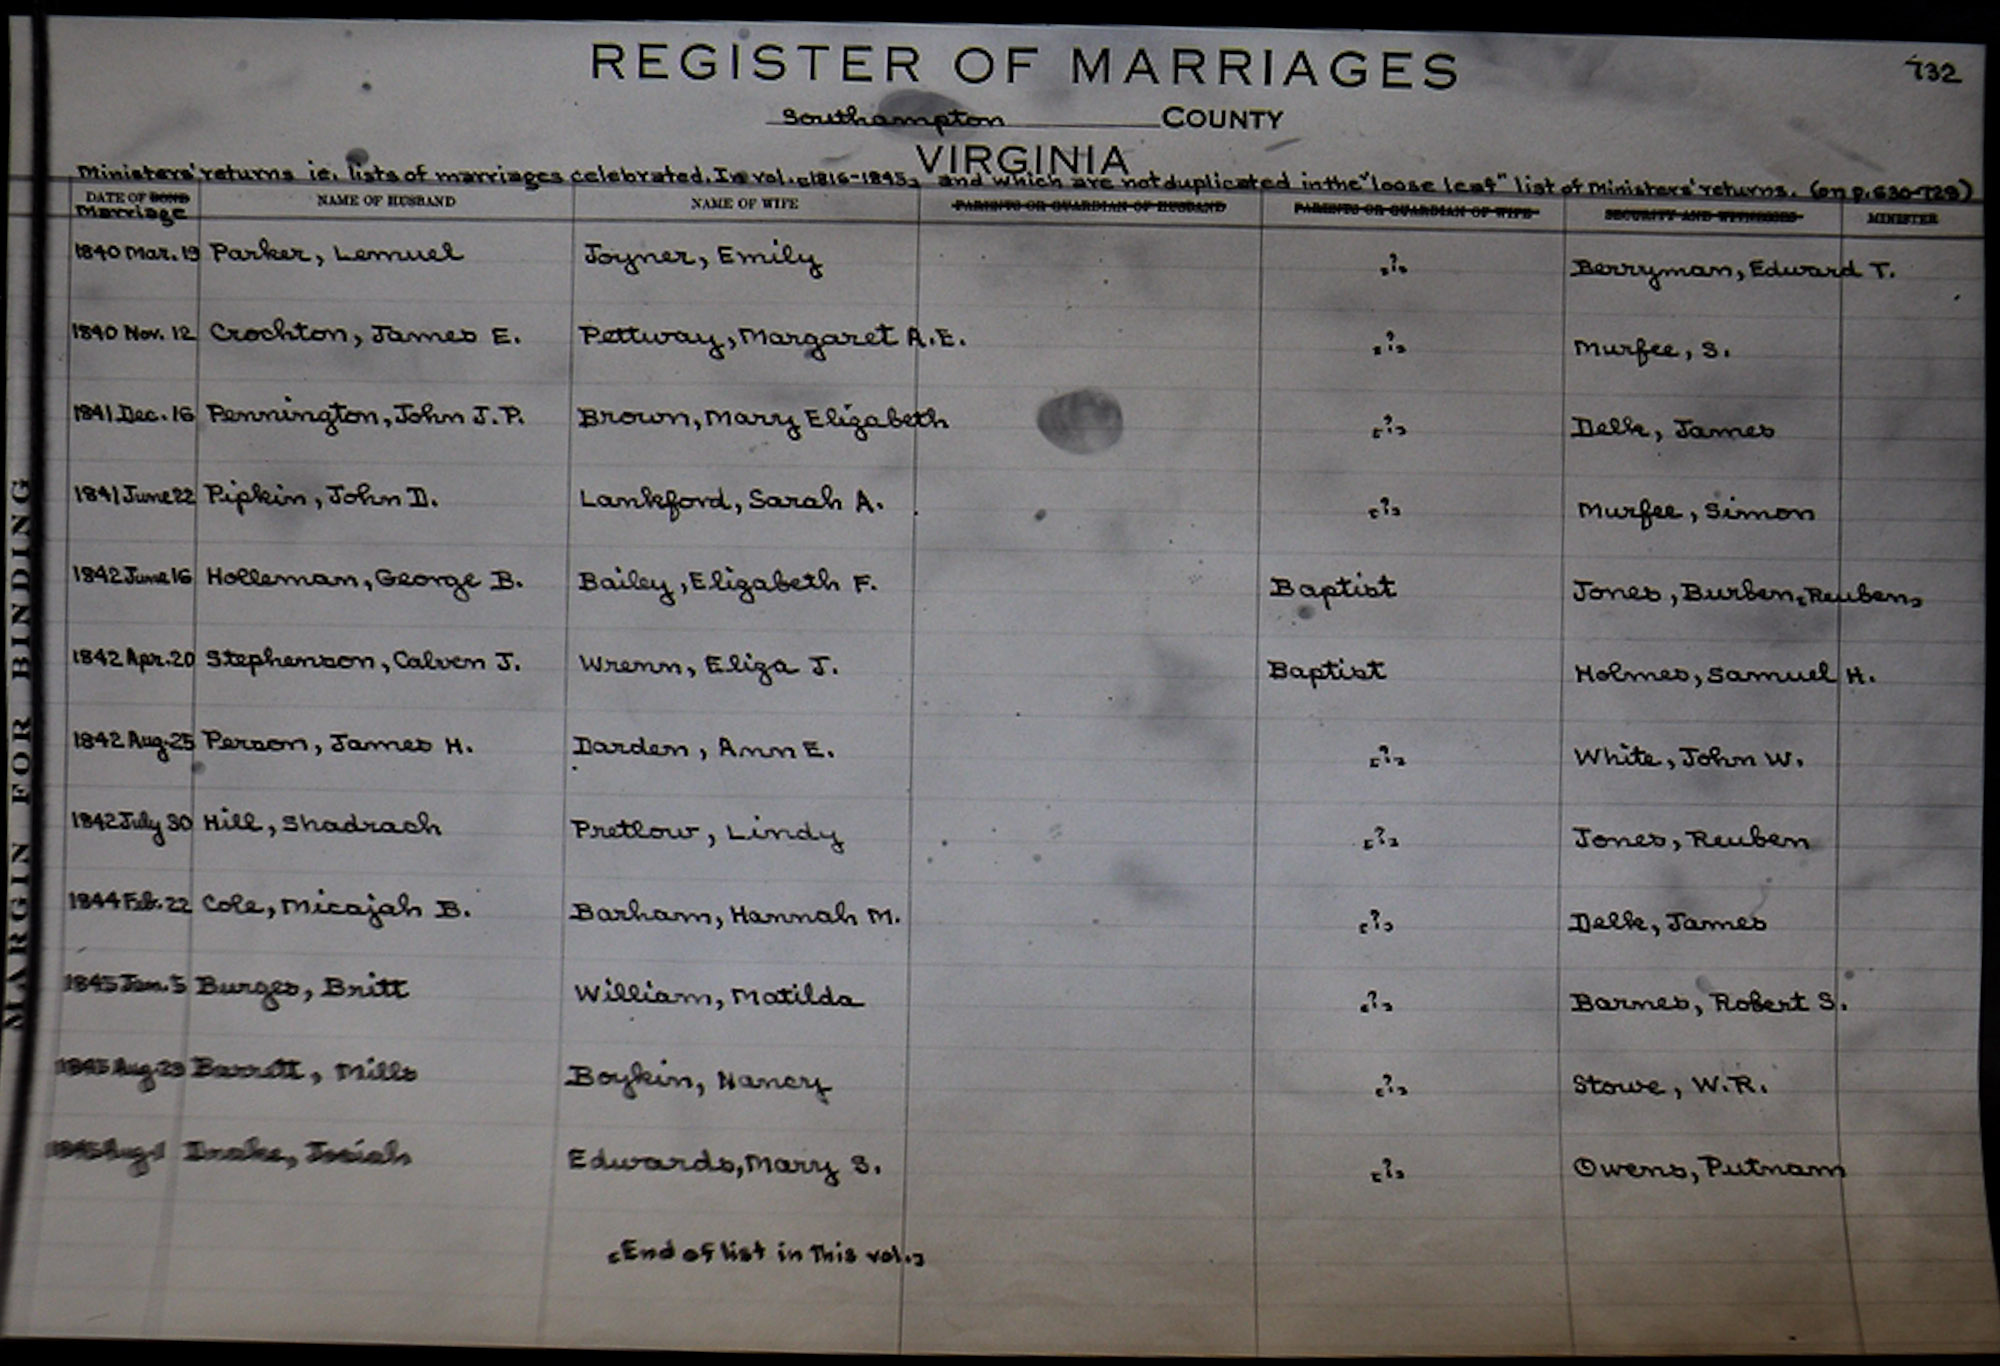 REGISTER OF MARRIAGES
732
Southampton COUNTY
VIRGINIA
Ministers' returns ie. lists of marriages celebrated. In vol. [1816-1845] and which are not duplicated in the "loose leaf" list of Ministers' returns. (on p. 630-729)
DATE OF BOND Marriage NAME OF HUSBAND NAME OF WIFE PARENTS OR GUARDIAN OF HUSBAND PARENTS OR GUARDIAN OF WIFE SECURITY AND WITNESSES MINISTER
1840 Mar. 19 Parker, Lemuel Joyner, Emily [?] Berryman, Edward T.
1840 Nov. 12 Crochton, James E. Pettway, Margaret A.E. [?] Murfee, S.
1841 Dec. 16 Pennington, John J.P. Brown, Mary Elizabeth [?] Delk, James
1841 June 22 Pipkin, John D. Lankford, Sarah A. [?] Murfee, Simon
1842 June 16 Holleman, George B. Bailey, Elizabeth F. Baptist Jones, Burben [Reuben]
1842 Apr. 20 Stephenson, Calven J. Wrenn, Eliza J. Baptist Holmes, Samuel H.
1842 Aug. 25 Person, James H. Darden, Ann E. [?] White, John W.
1842 July 30 Hill, Shadrach Pretlow, Lindy [?] Jones, Reuben
1844 Feb. 22 Cole, Micajah B. Barham, Hannah M. [?] Delk, James
1845 Jan. 5 Burges, Britt William, Matilda [?] Barnes, Robert S.
1845 Aug 23 Barrett, Mills Boykin, Nancy [?] Stowe, W.R.
1845 Aug Drake, Josiah Edwards, Mary S. [?] Owens, Putnam
[End of list in this vol.]
MARGIN FOR BINDING